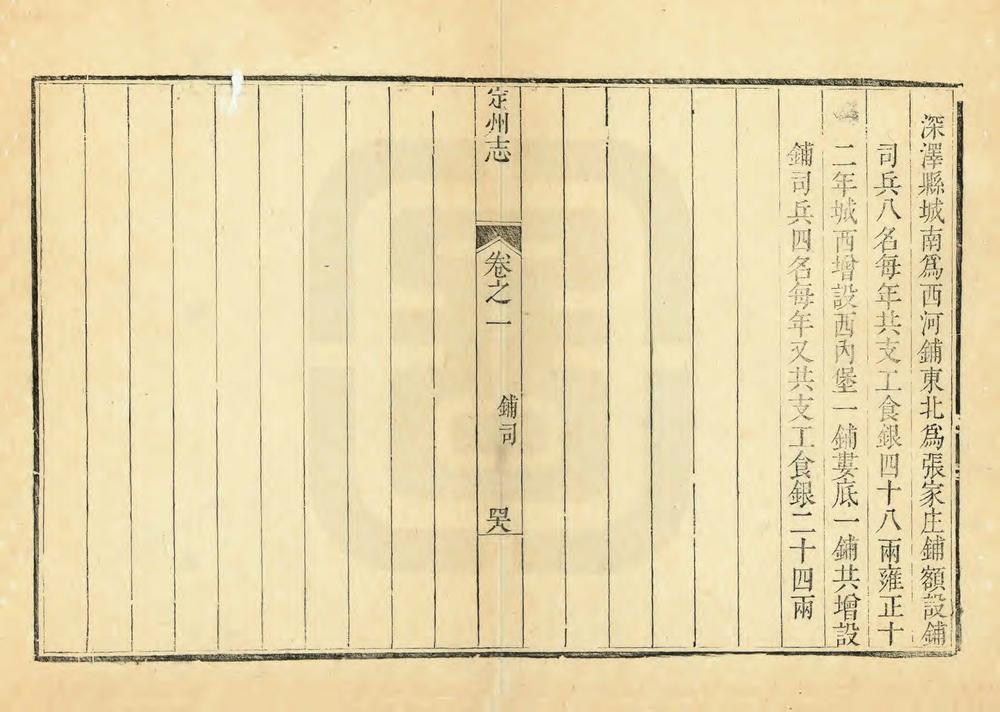 深澤縣城南爲西河鋪東北爲張家庄鋪額設鋪
司兵八名每年共支工食銀四十八兩雍正十
二年城西增設西內堡一鋪婁底一鋪共增設
鋪司兵四名每年又共支工食銀二十四兩
定州志
卷之一
鋪司
哭